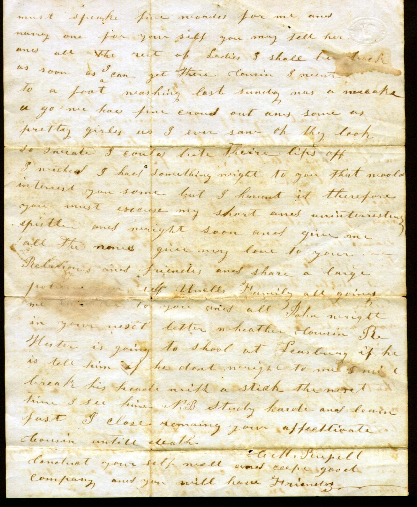 must speake fine words for me and
marry one for your self you may tell her
and all the rest of Ladies I shall be back
as soon as I can get there Cousin I went
to a foot washing last sunday was a
a go we had fine crowd out and some as
pretty girls as I ever saw oh thy look
so sweate I could bite theire lips off
I wished I had something wright to you that would
interest you some but I havent it therefore
you must excuse my short and uninteresting
epistle and wright soon and give me
all the news give my love to your
Relations and friends and share a large
self Uncles Family all
me to you and all John wright
in your next letter wheather Cousin
Hester is going to shool at if he
is tell him if he dont wright to me I will
break his head with a stick the next
time I see him NB Study harde and learn
fast I close remaing your affectionate
Cousin untill death
Conduct your self well and keepe good
Company and you will have Friends